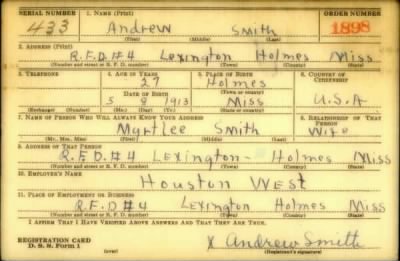 SERIAL NUMBER 1. NAME (Print) ORDER NUMBER
433 Andrew Smith 1898
(First) (Middle) (Last)
2. ADDRESS (Print)
R.F.D.#4 Lexington Holmes Miss
(Number and street or R. F. D. number) (Town) (County) (State)
3. TELEPHONE 4. AGE IN YEARS 5. PLACE OF BIRTH 6. COUNTRY OF CITIZENSHIP
27 Holmes
DATE OF BIRTH (Town or county)
5 9 1913 Miss U.S.A
(Exchange) (Number) (Mo.) (Day) (Yr.) (State or country)
7. NAME OF PERSON WHO WILL ALWAYS KNOW YOUR ADDRESS 8. RELATIONSHIP OF THAT PERSON
Myrtlee Smith Wife
(Mr., Mrs., Miss) (First) (Middle) (Last)
9. ADDRESS OF THAT PERSON
R.F.D.#4 Lexington- Holmes Miss
(Number and street or R. F. D. number) (Town) (County) (State)
10. EMPLOYER'S NAME
Houston West
11. PLACE OF EMPLOYMENT OR BUSINESS
R.F.D#4 Lexington Holmes Miss
(Number and street or R. F. D. number) (Town) (County) (State)
I AFFIRM THAT I HAVE VERIFIED ABOVE ANSWERS AND THAT THEY ARE TRUE.
REGISTRATION CARD
D. S. S. Form 1 X Andrew Smith
(Registrant's signature)